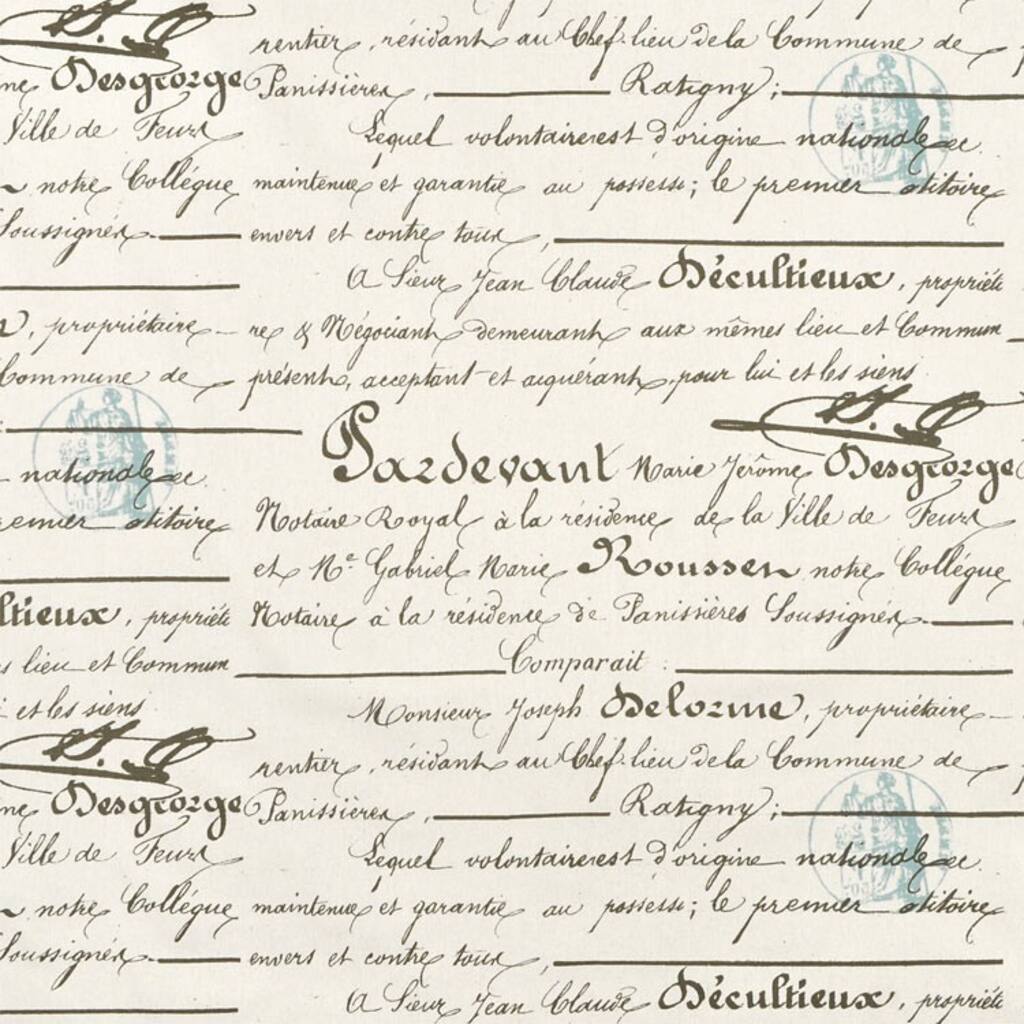 rentier, résidant au Chef-lieu de la Commune de
ne Desgeorge Panissières, Ratigny;
Ville de Feurs Lequel volontaires est d'origine nationale
notre Collégue maintenue et garantie au possess; le premier otitoire
Soussignés envers et contre tous,
A Sieur Jean Claude Décultieux, propriéte
, propriétaire re & Négociant demeurant aux mêmes lieu et Commun
Commune de présent, acceptant et acquérant pour lui et les siens
Pardevant Marie Jérôme Desgeorge
nationale Notaire Royal à la résidence de la Ville de Feurs
premier otitoire et Me Gabriel Marie Roussen notre Collégue
ltieux, propriéte Notaire à la résidence de Panissières Soussignés
lieu et Commun Comparait :
et les siens Monsieur Joseph Delorme, propriétaire
rentier, résidant au Chef-lieu de la Commune de
ne Desgeorge Panissières, Ratigny;
Ville de Feurs Lequel volontaires est d'origine nationale
notre Collégue maintenue et garantie au possess; le premier otitoire
Soussignés envers et contre tous,
A Sieur Jean Claude Décultieux, propriéte